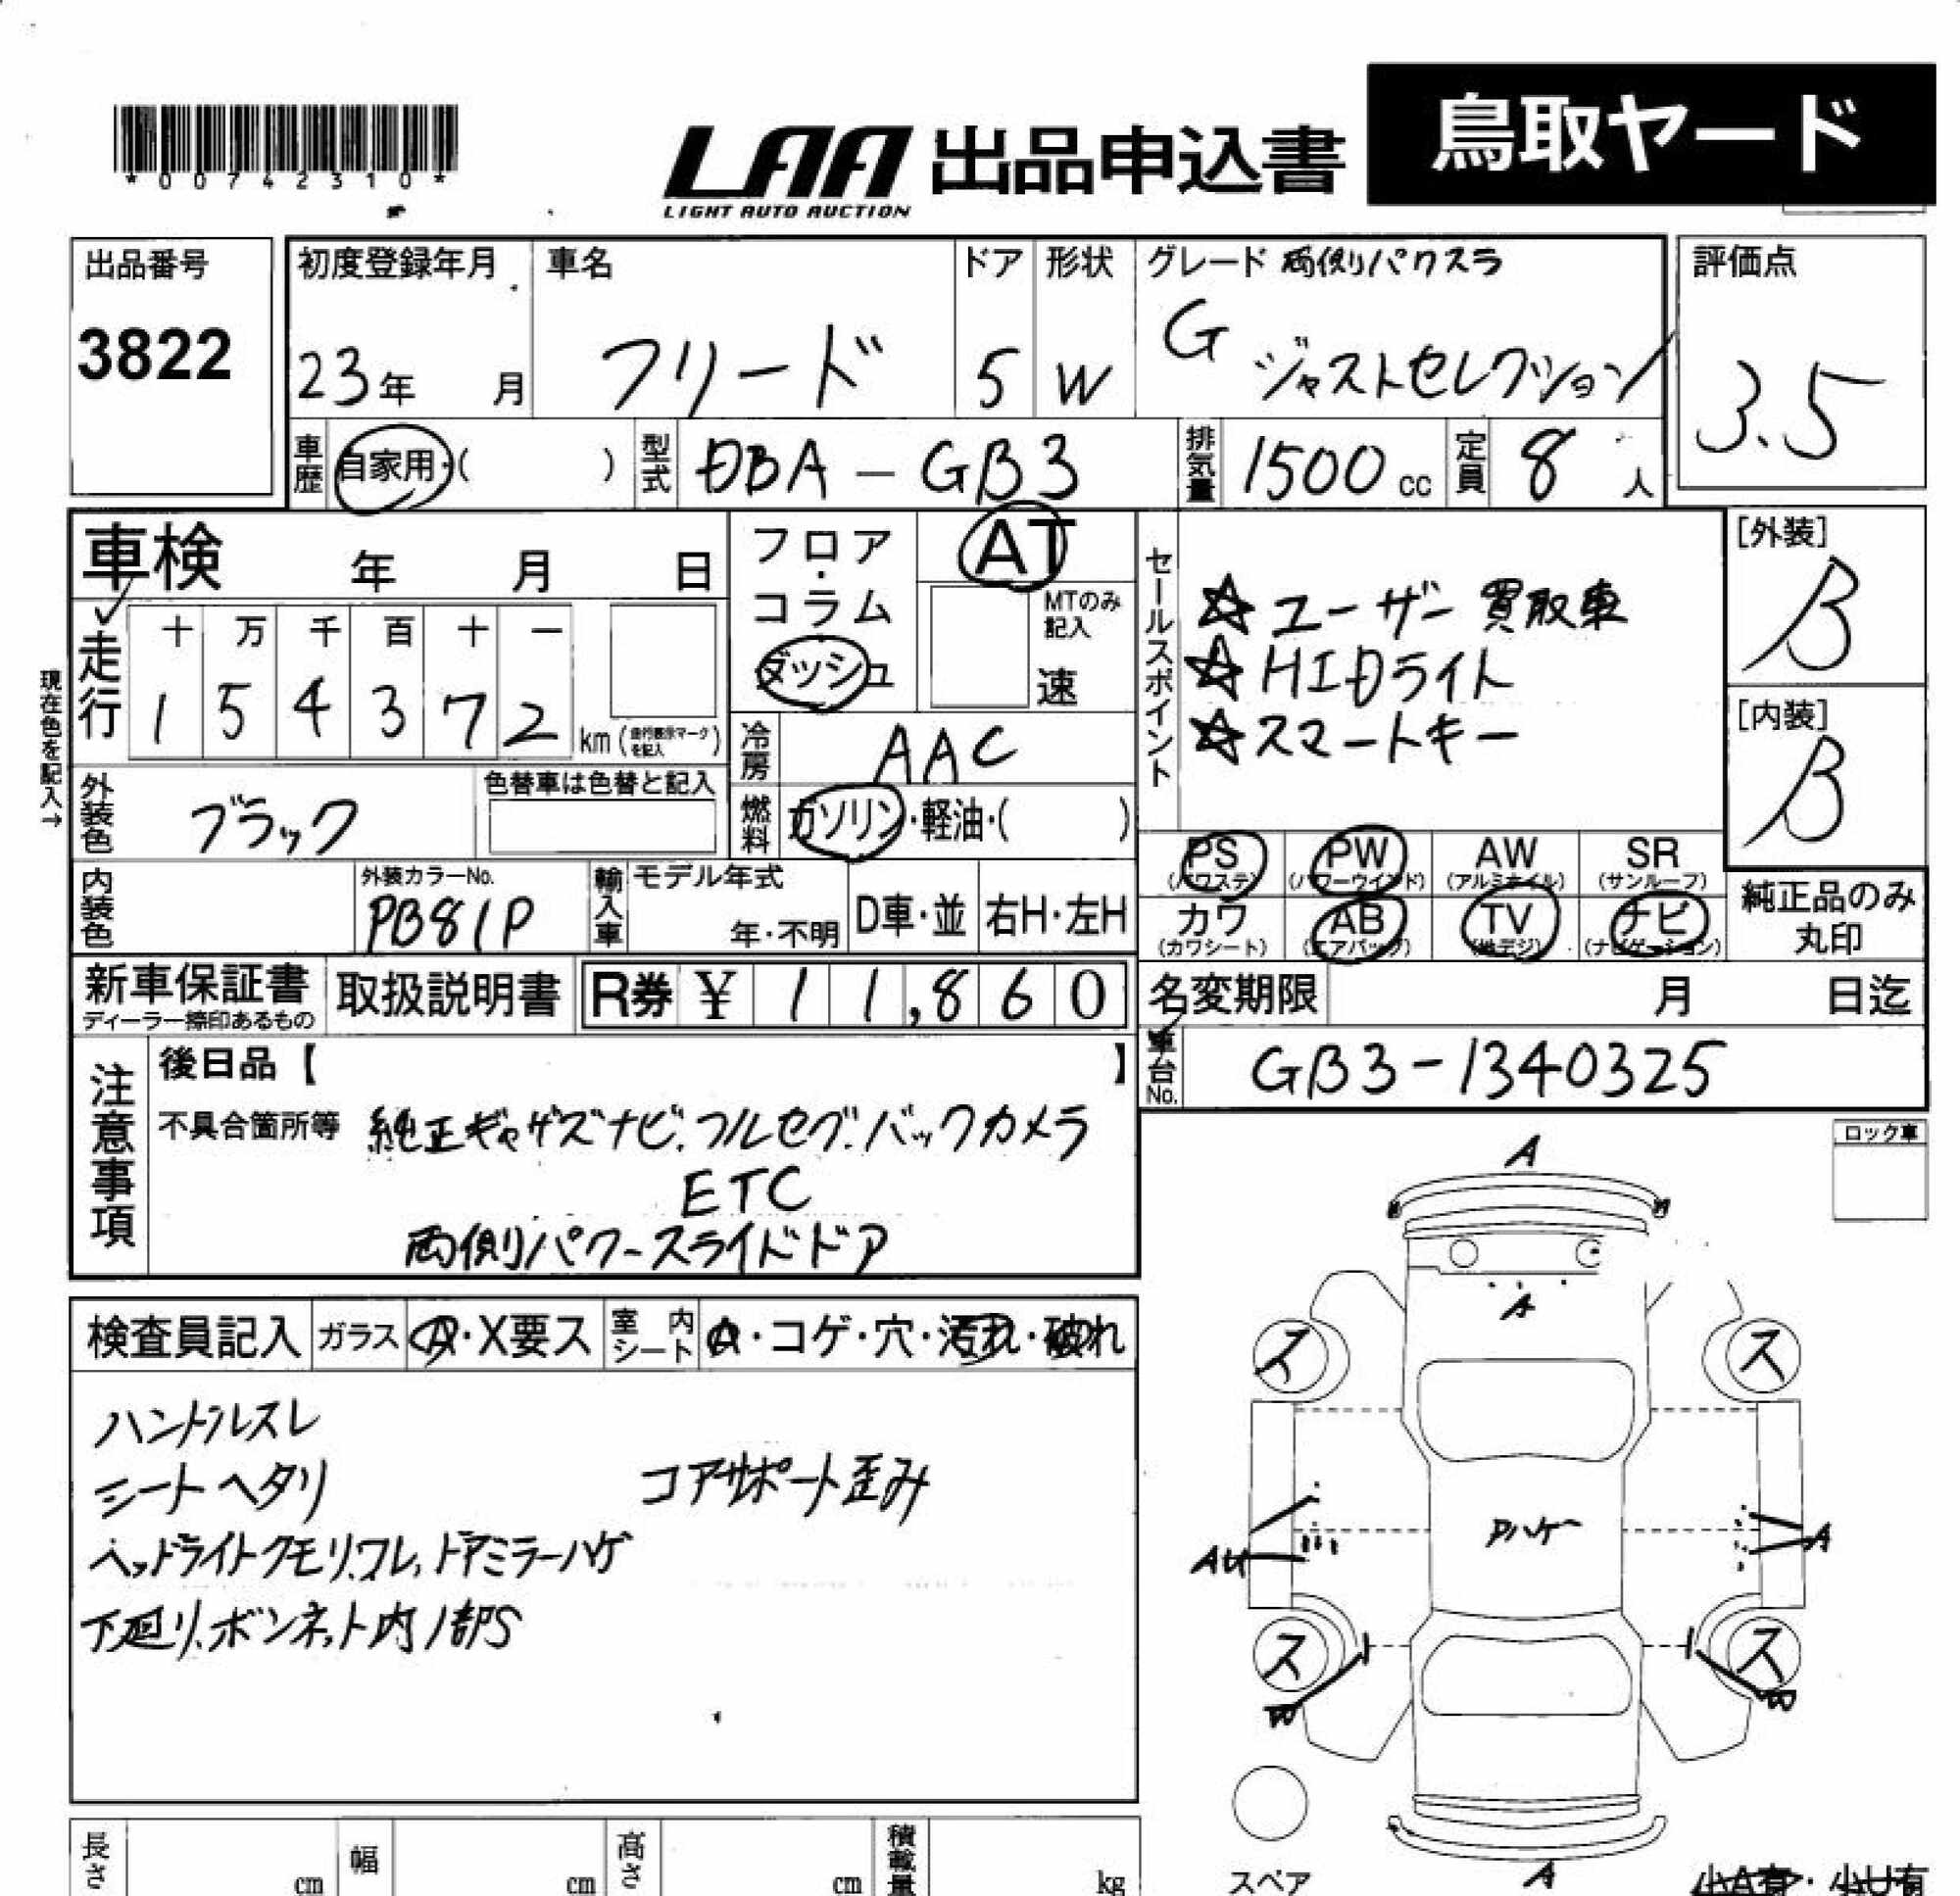 *00742310*
LAA 出品申込書
LIGHT AUTO AUCTION
鳥取ヤード
出品番号
3822
初度登録年月
23年 月
車名
フリード
ドア
5
形状
W
グレード 両側パワスラ
G
ジャストセレクション
評価点
3.5
車歴
自家用・( )
型式
DBA-GB3
排気量
1500cc
定員
8人
車検 年 月 日
走行
十 万 千 百 十 一
1 5 4 3 7 2 km(走行表示マークを記入)
現在色を記入→
フロア・コラム
ダッシュ
AT
MTのみ記入
速
冷房
AAC
燃料
ガソリン・軽油・( )
外装色
ブラック
色替車は色替と記入
内装色
外装カラーNo.
PB81P
輸入車
モデル年式
年・不明
D車・並
右H・左H
セールスポイント
☆ユーザー買取車
☆HIDライト
☆スマートキー
[外装]
B
[内装]
B
PS (パワステ)
PW (パワーウインド)
AW (アルミホイル)
SR (サンルーフ)
カワ (カワシート)
AB (エアバッグ)
TV (地デジ)
ナビ (ナビゲーション)
純正品のみ丸印
新車保証書
ディーラー捺印あるもの
取扱説明書
R券 ¥ 11,860
名変期限 月 日迄
車台No.
GB3-1340325
注意事項
後日品【 】
不具合箇所等 純正ギャザズナビ.フルセグ.バックカメラ
ETC
両側パワースライドドア
ロック車
検査員記入
ガラス
A・X要ス
室内シート
A・コゲ・穴・汚れ・破れ
ハンドルスレ
シートヘタリ
コアサポート歪み
ヘッドライトクモリ.ワレ、ドアミラーハゲ
下廻り、ボンネット内1部S
A
A
ス
ス
AU
A
ス
ス
B
B
A
スペア
長さ cm
幅 cm
高さ cm
積載量 kg
小A有・小U有